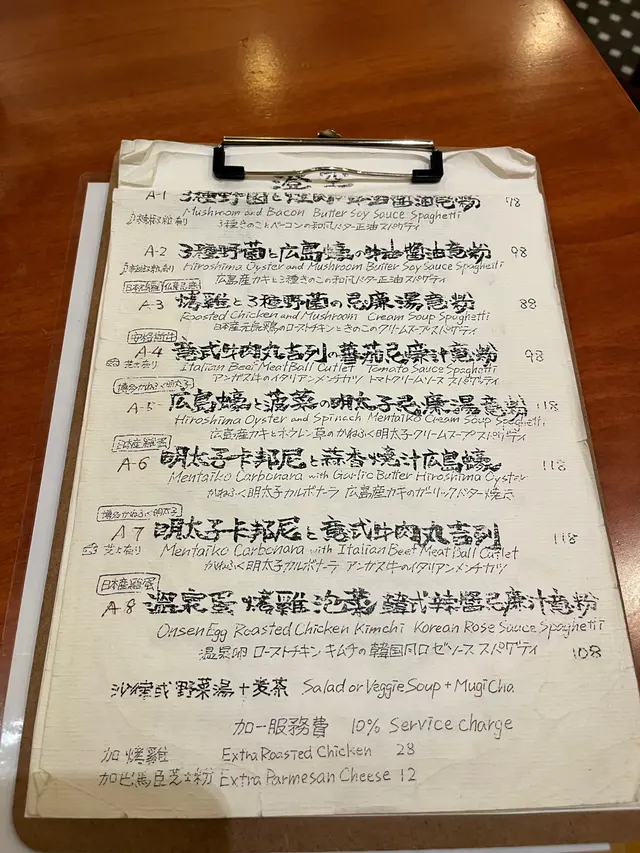 A-1 3種野菌と煙肉の牛油醬油意粉 98
Mushroom and Bacon Butter Soy Sauce Spaghetti
3種きのことベーコンの和風バター正油スパゲティ
A-2 3種野菌と広島蠔の牛油醬油意粉 98
Hiroshima Oyster and Mushroom Butter Soy Sauce Spaghetti
広島産カキと3種きのこの和風バター正油スパゲティ
A-3 烤雞と3種野菌の忌廉湯意粉 88
Roasted Chicken and Mushroom Cream Soup Spaghetti
日本産元気鶏のローストチキンときのこのクリームスープスパゲティ
A-4 意式牛肉丸吉列の蕃茄忌廉汁意粉 98
芝士有り Italian Beef Meat Ball Cutlet Tomato Sauce Spaghetti
アンガス牛のイタリアンメンチカツ トマトクリームソース スパゲティ
博多かねふく明太子
A-5 広島蠔と菠菜の明太子忌廉湯意粉 118
Hiroshima Oyster and Spinach Mentaiko Cream Soup Spaghetti
広島産カキとホウレン草のかねふく明太子クリームスープスパゲティ
日本産雞蛋
A-6 明太子卡邦尼と蒜香燒汁広島蠔 118
Mentaiko Carbonara with Garlic Butter Hiroshima Oyster
かねふく明太子カルボナーラ 広島産カキのガーリックバター焼き
博多かねふく明太子
A-7 明太子卡邦尼と意式牛肉丸吉列 118
芝士有り Mentaiko Carbonara with Italian Beef Meat Ball Cutlet
かねふく明太子カルボナーラ アンガス牛のイタリアンメンチカツ
日本産雞蛋
A-8 溫泉蛋 烤雞泡菜 韓式辣醬忌廉汁意粉
Onsen Egg Roasted Chicken Kimchi Korean Rose Sauce Spaghetti
温泉卵 ローストチキン キムチの韓国風ロゼソース スパゲティ 108
沙律或野菜湯+麦茶 Salad or Veggie Soup + Mugi Cha
加一服務費 10% Service charge
加烤雞 Extra Roasted Chicken 28
加巴馬臣芝士粉 Extra Parmesan Cheese 12